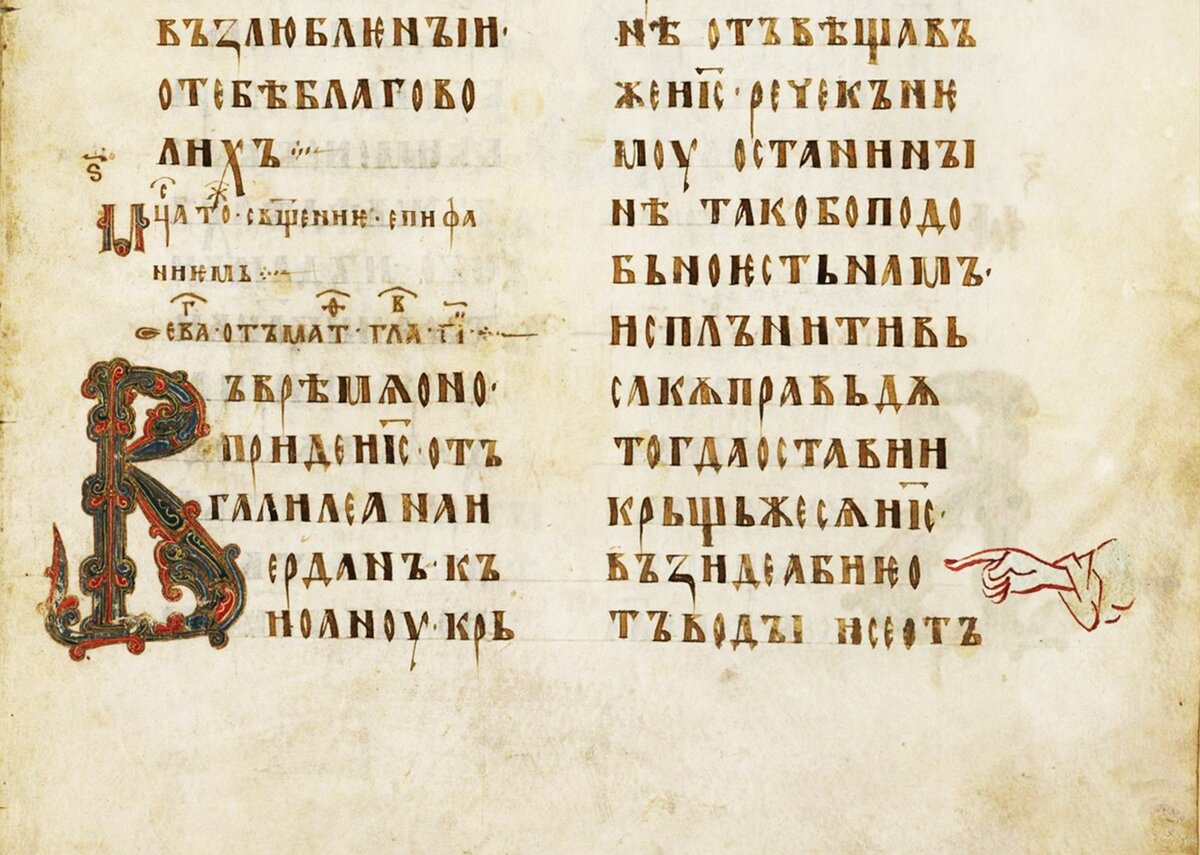 въꙁлюблѥнꙑи·
отебѣблагово
лихъ
ѕ҃
цⷭ҇а тⷪ҇ж· свѧщ҃ениѥ· епифа
ниѥмь
ева· отъмат҇· гла· г҃і
Въврѣмѧоно·
придеиі҃с· отъ
галилеа наи
ерданъ· къ
иоаноу· крь
нѣ отъвѣщавъ
жеиі҃с· речекънѥ
моу останинꙑ
нѣ такобоподо
бьноѥстьнамъ·
исплънитивь
сакѫправьдѫ
тогдаоставии
крьщьжесѧиі҃с·
въꙁидеабиѥо
тъводꙑ исеотъ